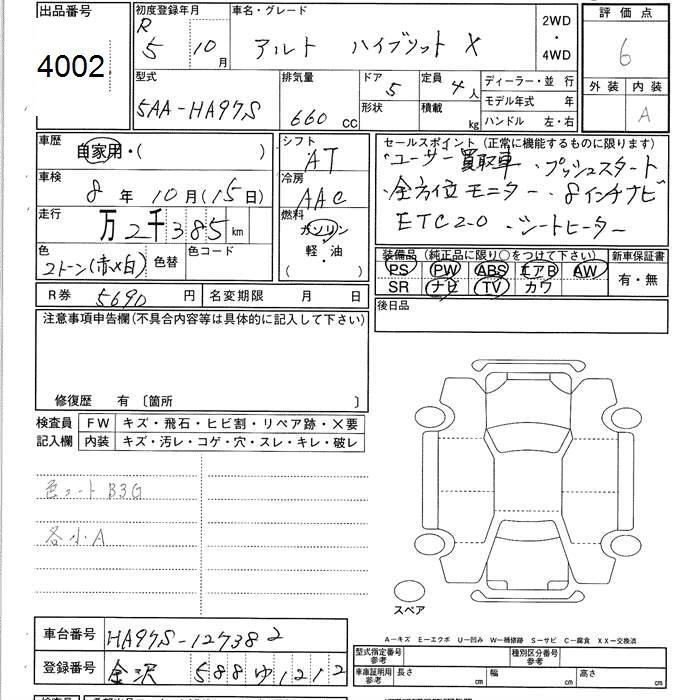 出品番号 初度登録年月 車名・グレード 2WD・4WD 評価点
4002 R5年 10月 アルト ハイブリット X 6
型式 排気量 ドア 定員 ディーラー・並行 外装 内装
5AA-HA97S 660 CC 5 4人 モデル年式 年 A
形状 積載 kg ハンドル 左・右
車歴 自家用・( ) シフト AT
車検 8年 10月(15日) 冷房 AAC
走行 万2千385km 燃料 ガソリン 軽・油 ( )
色 2トーン(赤×白) 色替 色コード
R券 5690 円 名変期限 月 日
セールスポイント (正常に機能するものに限ります)
・ユーザー買取車 ・プッシュスタート
・全方位モニター ・8インチナビ
ETC2.0 ・シートヒーター
装備品 (純正品に限り○をつけて下さい) 新車保証書
PS PW ABS エアB AW 有・無
SR ナビ TV カワ
後日品
注意事項申告欄(不具合内容等は具体的に記入して下さい)
修復歴 有 〔箇所 〕
検査員 FW キズ・飛石・ヒビ割・リペア跡・×要
記入欄 内装 キズ・汚レ・コゲ・穴・スレ・キレ・破レ
B3G
各小A
スペア
車台番号 HA97S-127382
登録番号 金沢 588 ゆ 1212
A-キズ E-エクボ U-凹み W-補修跡 S-サビ C-腐食 XX-交換済
型式指定番号 参考 種別区分番号 参考
車庫証明用 参考 長さ cm 幅 cm 高さ cm